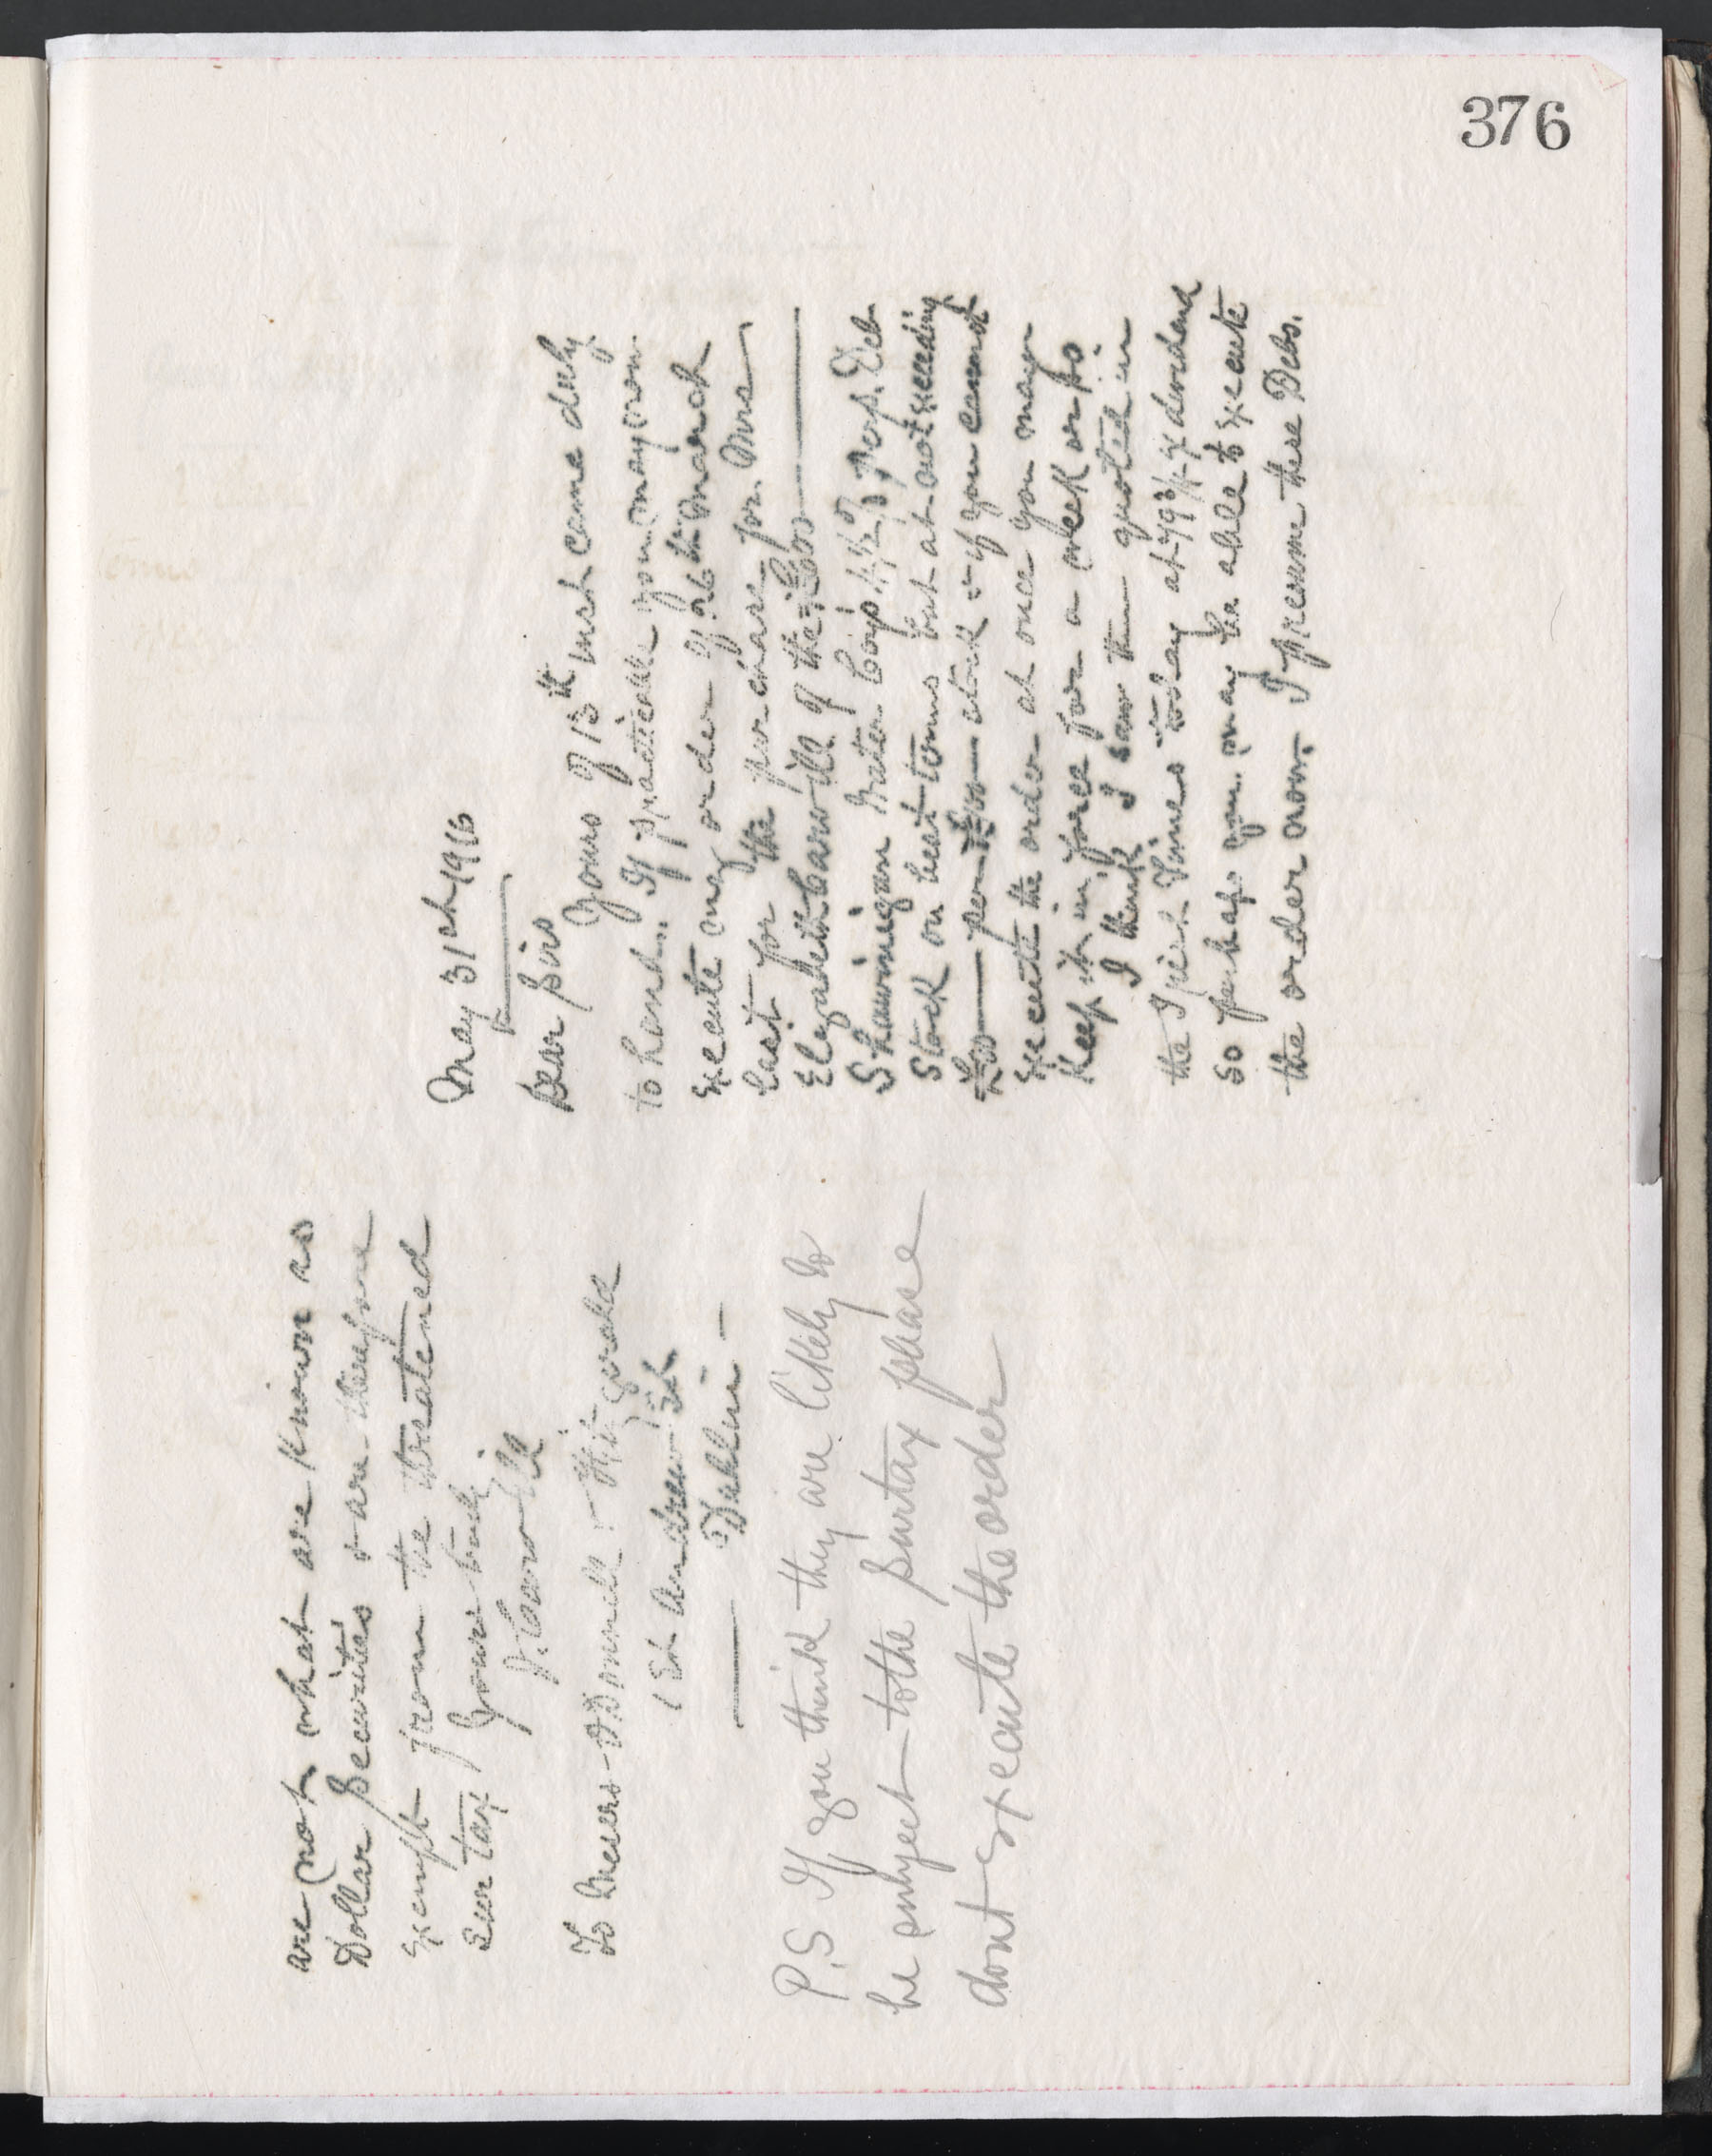 376
May 31st 1916
Dear Sirs
Yours of 13th inst came duly
to hand. If practicable you may now
execute my order of 26th March
last for the purchase for Mrs
Elizabeth Carvill of the
Shawinigan Water Coy's 4½ % Perp. Deb
Stock on best terms but at not exceeding
per stock & if you cannot
execute the order at once you may
Keep it in force for a week or so.
I think I saw them quoted in
the Irish Times today at 79¾ x dividend
so perhaps you may be able to execute
the order now. I presume these Debs.
are not what are known as
Dollar Securities & are therefore
exempt from the threatened
Sur tax Yours truly
To Messrs O'Donnell & Fitzgerald
1 St Andrew St
Dublin
P.S If you think they are likely to
be subject to the Surtax please
dont execute the order